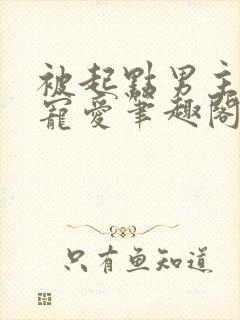 被起點男主
寵愛筆趣閣
只有魚知道